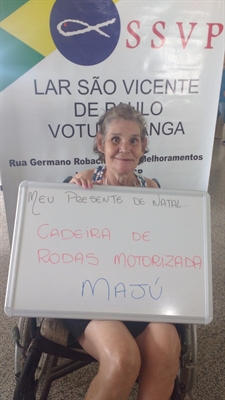 SSVP
LAR SÃO VICENTE
DE PAULO
VOTU ANGA
Rua Germano Robac Melhoramentos
MEU PRESENTE DE NATAL
CADEIRA DE
RODAS MOTORIZADA
MAJÚ